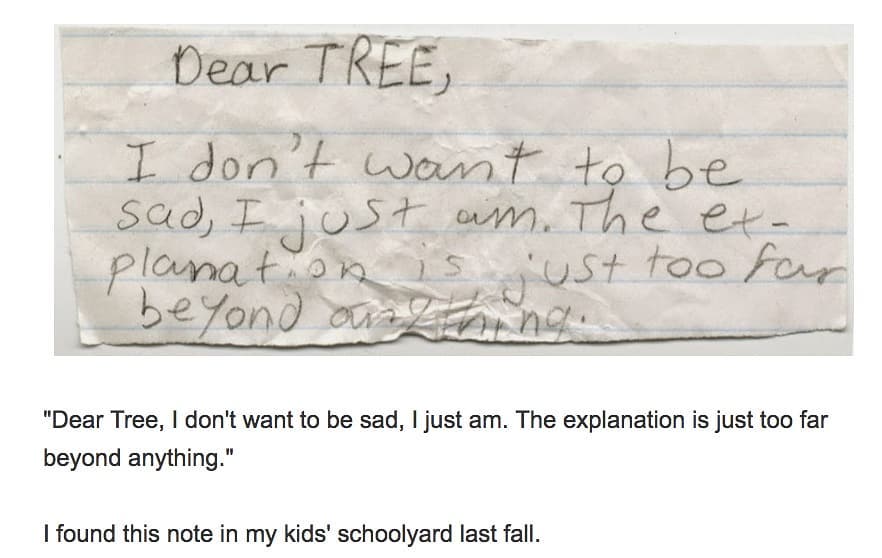 Dear TREE,
I don't want to be
sad, I just am. The ex-
planation is just too far
beyond anything.
"Dear Tree, I don't want to be sad, I just am. The explanation is just too far
beyond anything."
I found this note in my kids' schoolyard last fall.